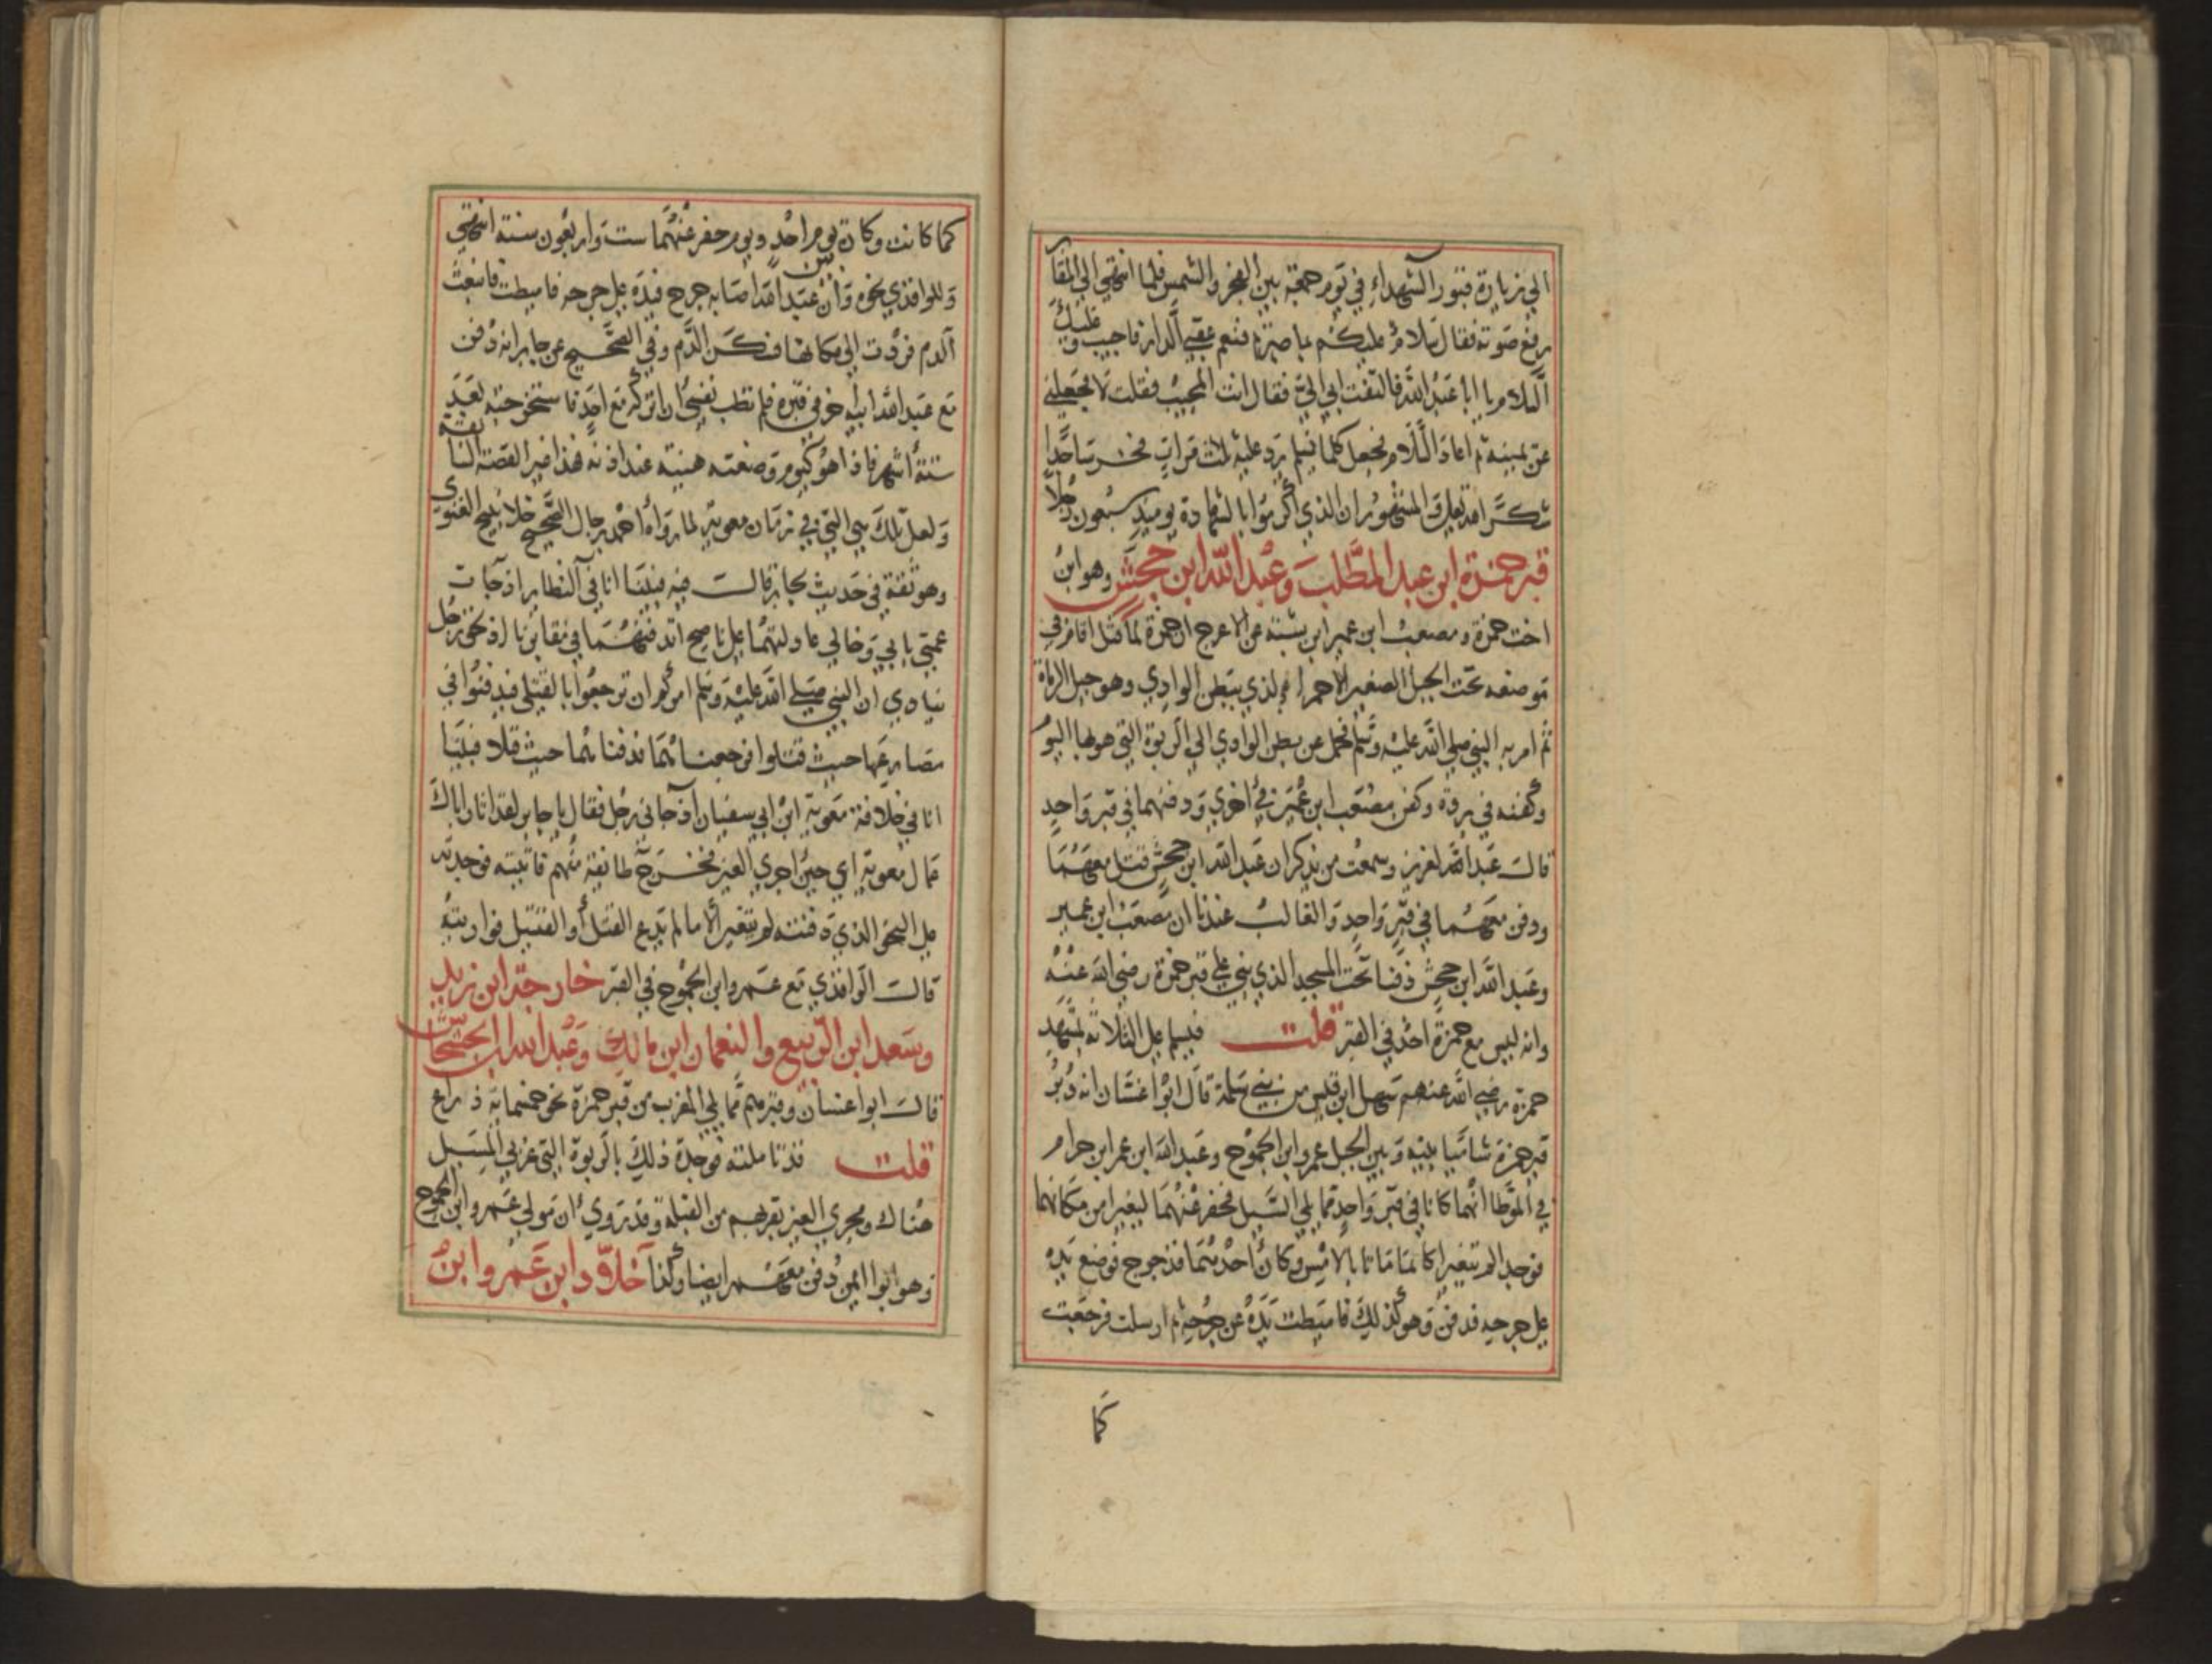 الي زيارة قبور الشهداء في يوم جمعة بين الفجر والشمس فلما انتهي الي المقابر
رفع صوته فقال سلام عليكم بما صبرتم فنعم عقبي الدار فاجيب وعليك
السلام يا ابا عبد الله فالتفت ابي الي فقال انت المجيب فقلت لا فجعلني
عن يمينه ثم اعاد السلام فجعل كلما يسلم يرد عليه ثلاث مرات فخر ساجدا
شكرا لله تعالي والمشهور ان الذي اكرموا بالشهادة يوميذ سبعون رجلا
قبر حمزة ابن عبد المطلب وعبد الله ابن جحش وهو ابن
اخت حمزة ومصعب ابن عمير ابن شبة عن الاعرج ان حمزة لما قتل اقام في
موضعه تحت الجبل الصغير الاحمر الذي ببطن الوادي وهو جبل الرماة
ثم امر به النبي صلي الله عليه وسلم فحمل عن بطن الوادي الي الربوة التي هو بها اليوم
وكفنه في بردة وكفن مصعب ابن عمير في اخري ودفنهما في قبر واحد
قال عبد العزيز وسمعت من يذكر ان عبد الله ابن جحش قتل معهما
ودفن معهما في قبر واحد والغالب عندنا ان مصعب ابن عمير
وعبد الله ابن جحش دفنا تحت المسجد الذي بني علي قبر حمزة رضي الله عنه
وانه ليس مع حمزة احد في القبر قلت فيسلم علي الثلاثة بمشهد
حمزة رضي الله عنهم سهل ابن قيس من بني سلمة قال ابوا غسان انه دبر
قبر حمزة شاميا بينه وبين الجبل عمرو ابن الجموح وعبد الله ابن عمر ابن حرام
في الموطا انهما كانا في قبر واحد مما يلي السيل فحفر عنهما ليغيرا من مكانهما
فوجدا لم يتغيرا كانما ماتا بالامس وكان احدهما قد جرح فوضع يده
علي جرحه فدفن وهو كذلك فاميطت يده عن جرحه ثم ارسلت فرجعت
كما
كما كانت وكان بين يوم احد ويوم حفر عنهما ست واربعون سنة انتهي
وللواقدي نحوه وان عبد الله اصابه جرح فيده علي جرحه فاميطت فانبعث
الدم فردت الي مكانها فسكن الدم وفي الصحيح عن جابر انه دفن
مع عبد الله ابيه اخر في قبره فلم تطب نفسي ان اتركه مع احد فاستخرجته بعد
ستة اشهر فاذا هو كيوم وضعته هنية عند اذنه فهذا غير القصة السابقة
ولعل تلك هي التي في زمان معوية لما رواه احمد برجال الصحيح خلا نبيح الغنوي
وهو ثقة في حديث لجابر قال فيه فبينا انا في النظار اذ جات
عمتي بابي وخالي عادلتهما علي ناضح اتدفنهما في مقابرنا اذ لحق رجل
ينادي ان النبي صلي الله عليه وسلم امركم ان ترجعوا بالقتلي فيدفنوا في
مصارعها حيث قتلوا فرجعنا بهما فدفناهما حيث قتلا فبينا
انا في خلافة معوية ابن ابي سفيان اذ جاني رجل فقال يا جابر لقد اثار اباك
عمال معوية اي حين اجري العين فخرج طايفة منهم فاتيته فوجدته
علي النحو الذي دفنته لم يتغير الا ما لم يدع القتل او القتيل فواريته
قال الواقدي مع عمرو ابن الجموح في القبر خارجة ابن زيد
وسعد ابن الربيع والنعمان ابن مالك وعبد الله ابن الحسحاس
قال ابوا غسان وقبرهم مما يلي المغرب من قبر حمزة نحو خمسماية ذراع
قلت قد تاملته فوجدة ذلك بالربوة التي غربي المسيل
هناك ومجري العين بقربهم من القبلة وقد روي ان مولي عمرو ابن الجموح
وهو ابوا ايمن دفن معهم ايضا وكذا خلاد ابن عمرو ابن